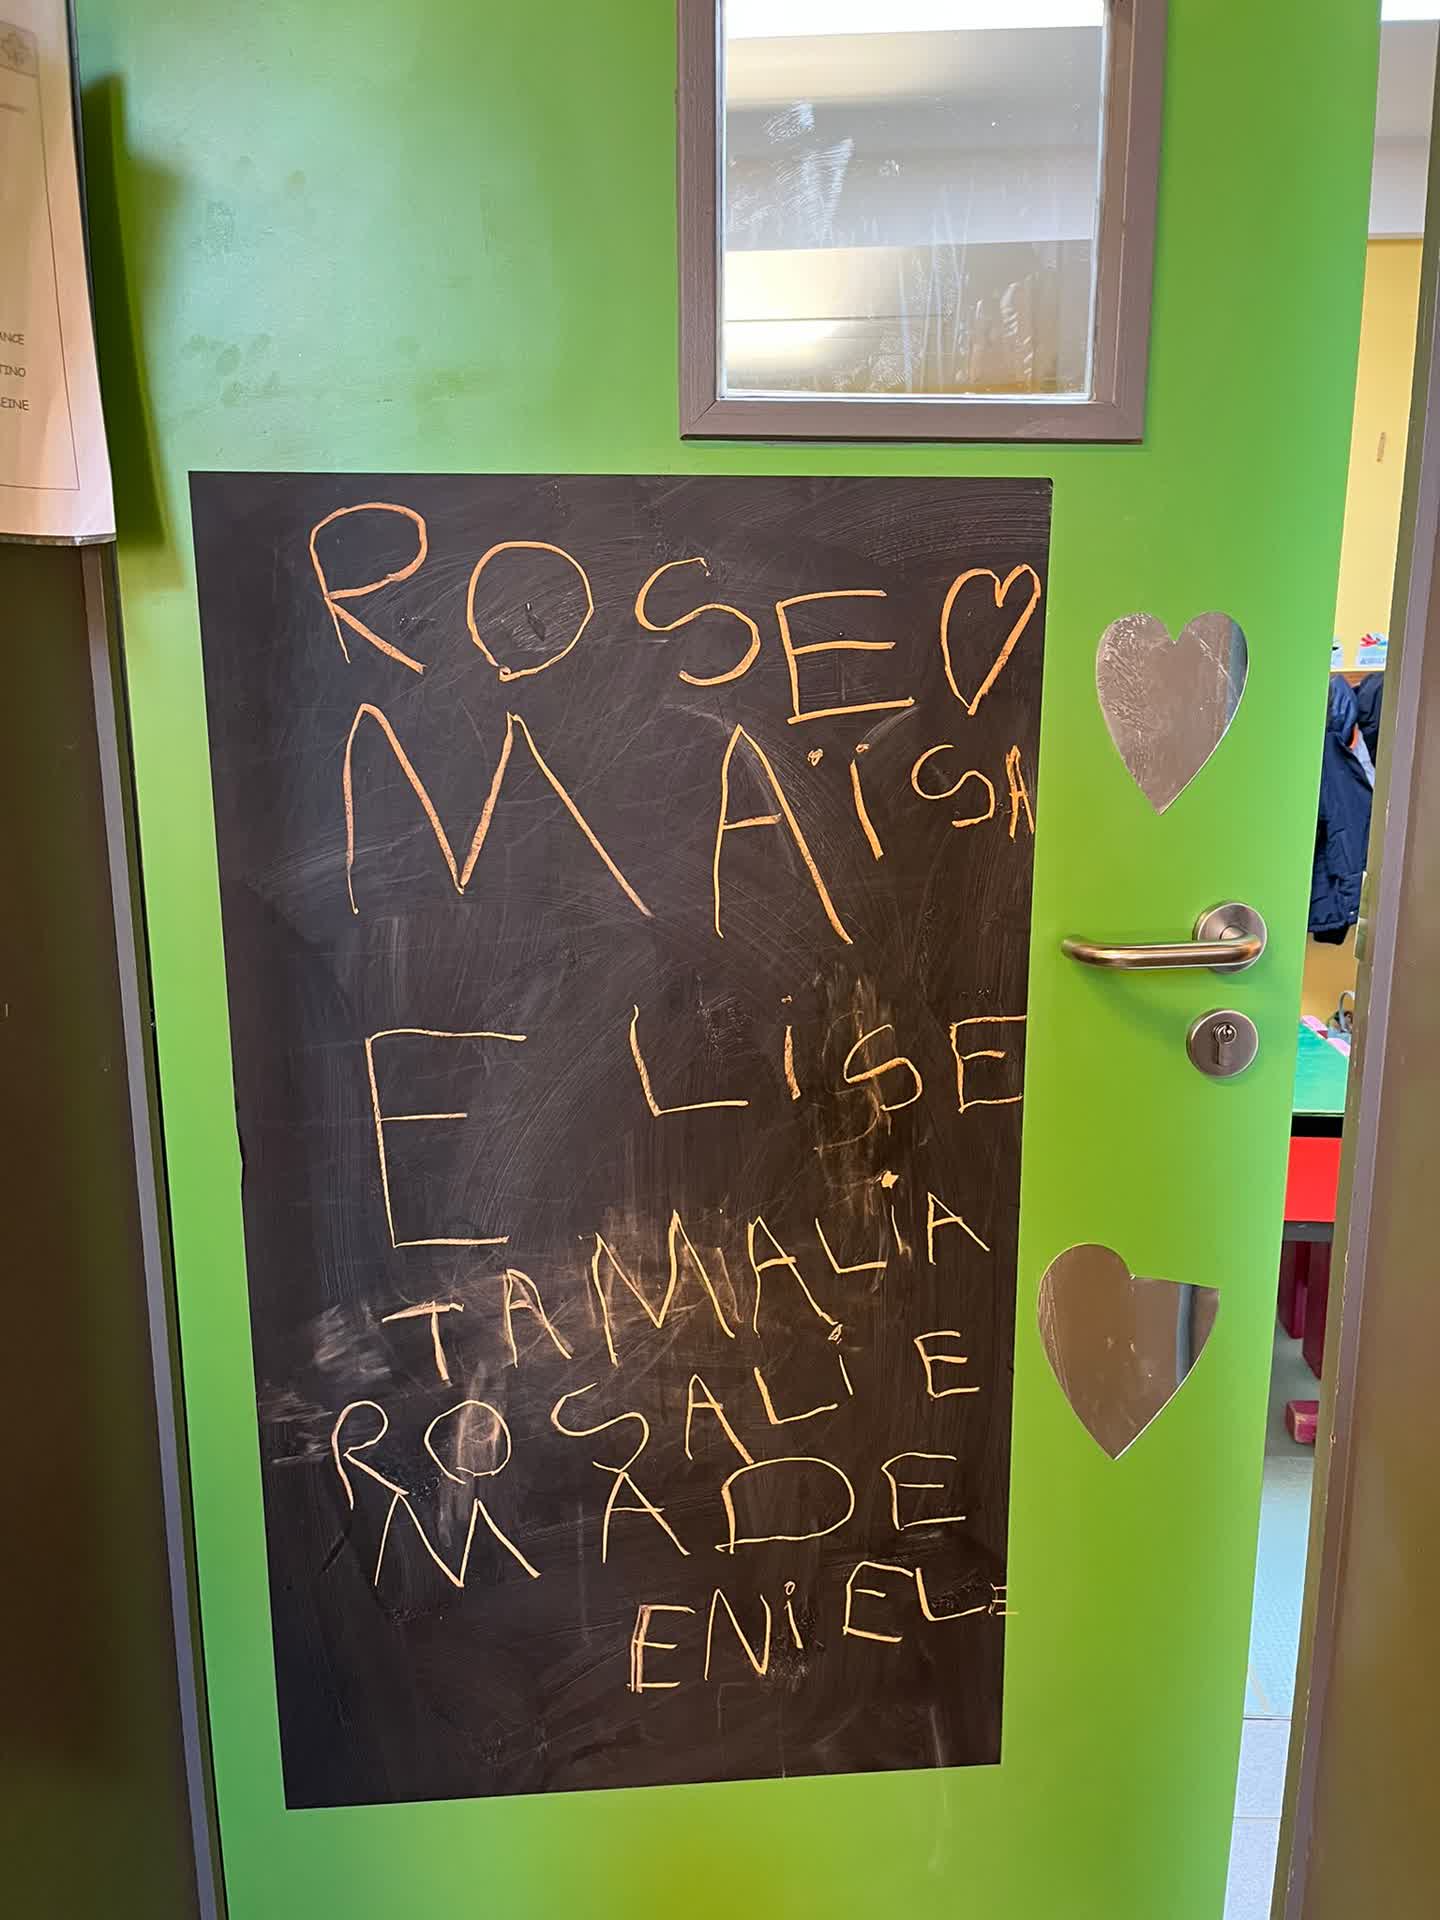 ANCE
TINO
EINE
ROSE
MAÏSA
ELiSE
TAMALiA
ROSALiE
MADE
ENiELE